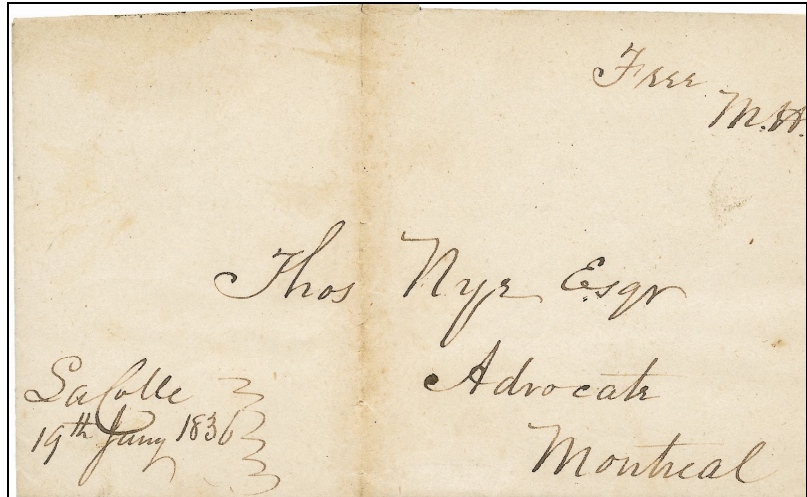 Free
M.H.
Thos Nye Esqr
Advocate
Montreal
LaColle
19th Jany 1836